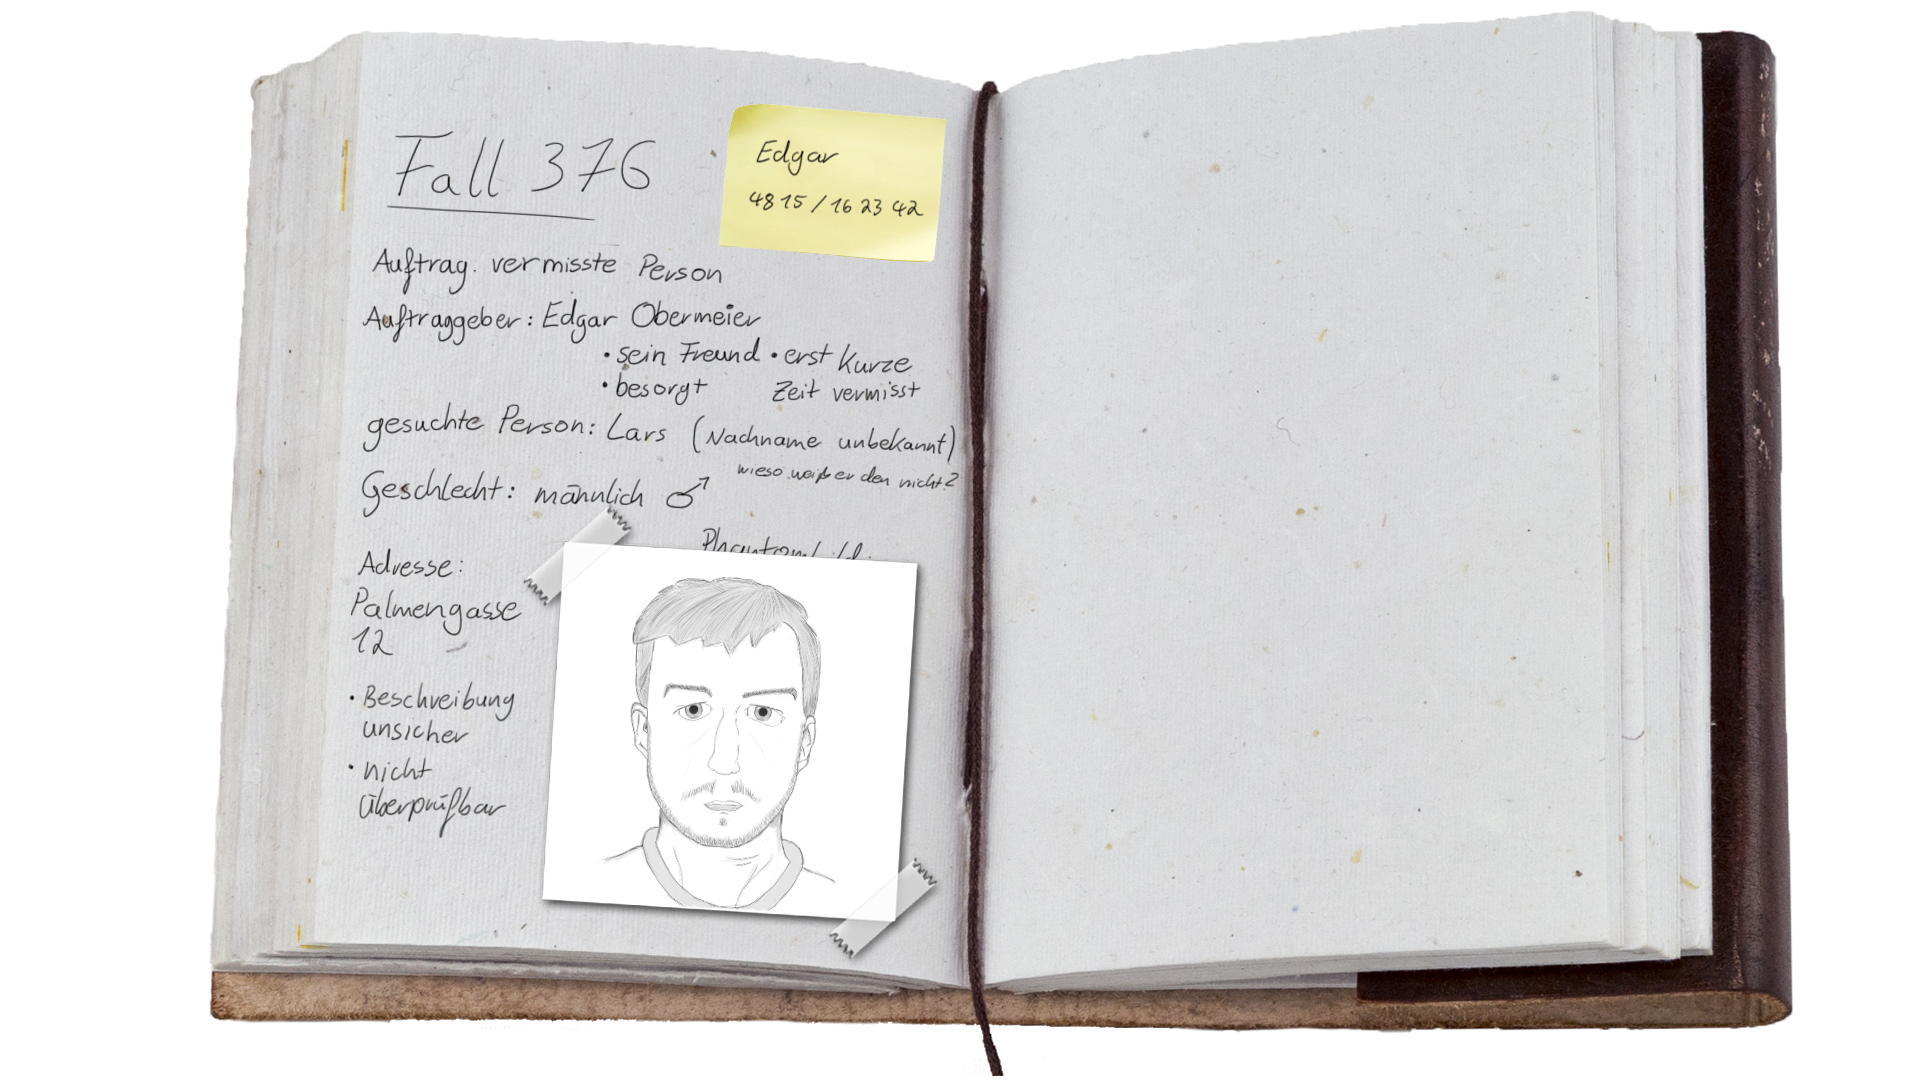 Fall 376
Edgar
4815 / 16 23 42
Auftrag. vermisste Person
Auftraggeber: Edgar Obermeier
• sein Freund • erst kurze
• besorgt Zeit vermisst
gesuchte Person: Lars (Nachname unbekannt)
wieso weiß er den nicht?
Geschlecht: männlich ♂
Phantombild
Adresse:
Palmengasse
12
• Beschreibung
unsicher
• nicht
überprüfbar